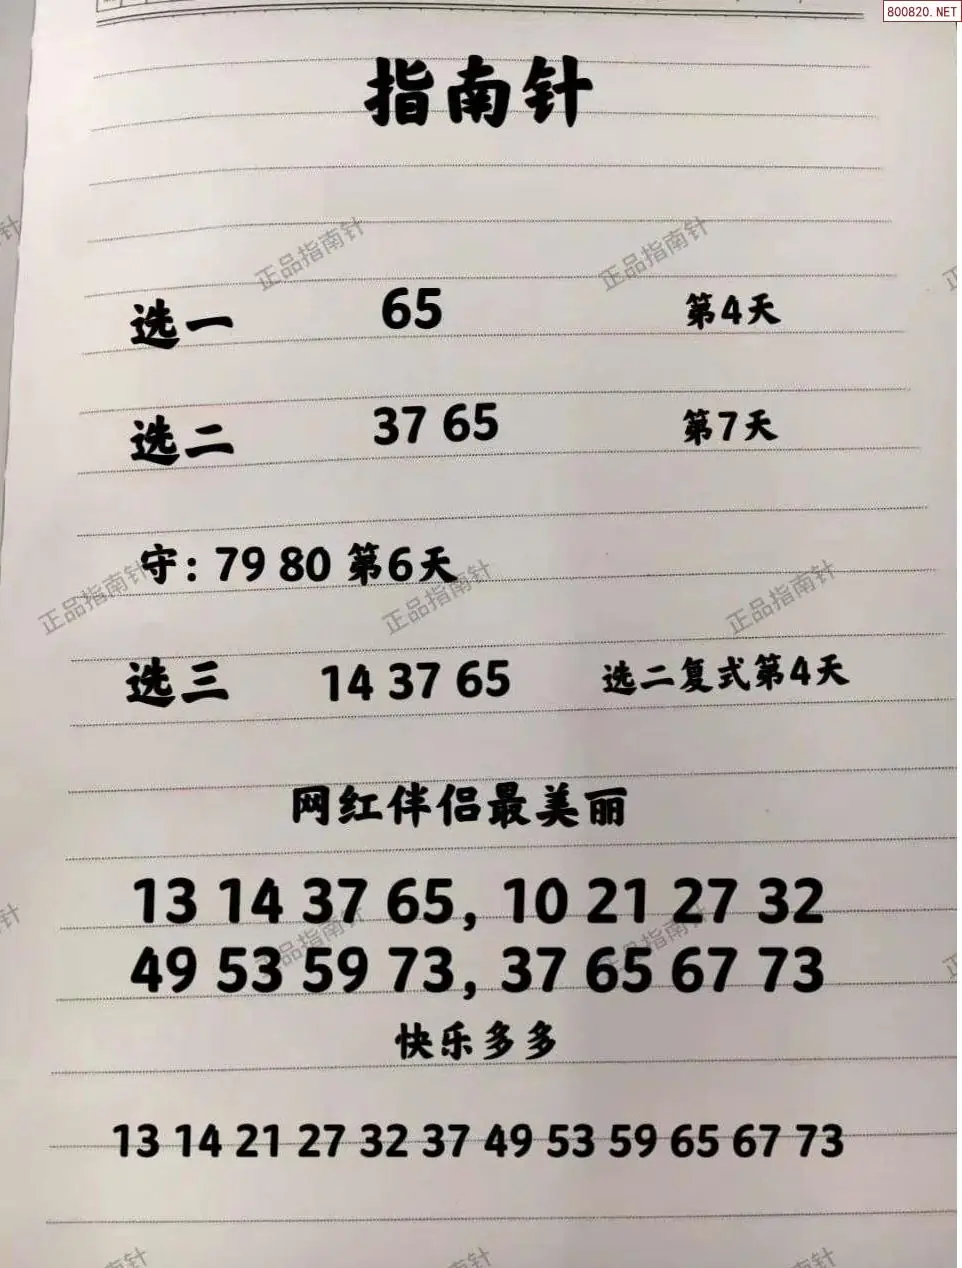 800820.NET
指南针
正品指南针 正品指南针
选一 65 第4天
选二 37 65 第7天
守：79 80 第6天
正品指南针 正品指南针 正品指南针
选三 14 37 65 选二复式第4天
网红伴侣最美丽
13 14 37 65, 10 21 27 32
正品指南针 正品指南针
49 53 59 73, 37 65 67 73
快乐多多
13 14 21 27 32 37 49 53 59 65 67 73